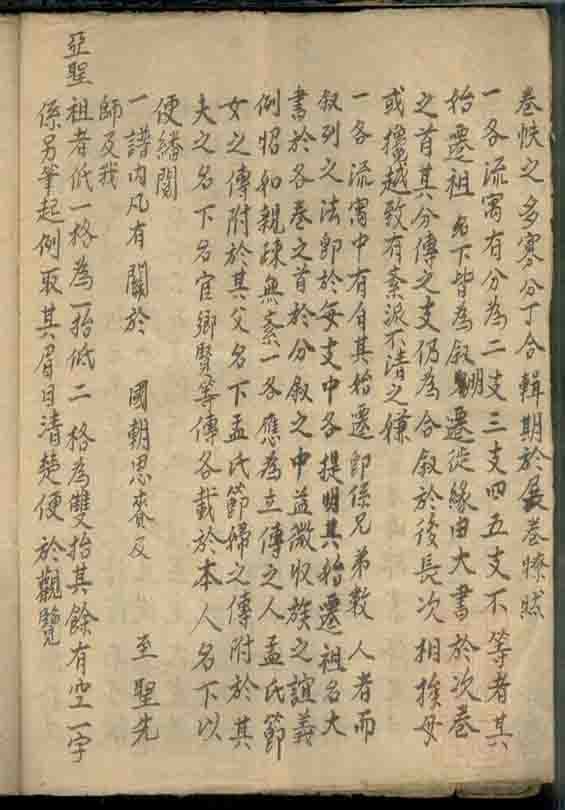 卷帙之多寡分丁合輯期於展卷憭然
一各流寓有分為二支三支四五支不等者其
始遷祖名下皆為敘明遷徙緣由大書於次卷
之首其分傳之支仍為合敘於後長次相挨毋
或攙越致有紊泯不清之嫌
一各流寓中有自其始遷即係兄弟數人者而
敘列之法即於每支中各提明其始遷祖名大
書於各卷之首於分敘之中益徵收族之誼義
例昭如親疎無紊一各應為立傳之人孟氏節
女之傳附於其父名下孟氏節婦之傳附於其
夫之名下名宦鄉賢等傳各載於本人名下以
便繙閱
一譜内凡有關於 國朝恩賚及 至聖先
師及我
亞聖祖者低一格為一抬低二格為雙抬其餘有空一字
係另筆起例取其眉目清楚便於觀覽